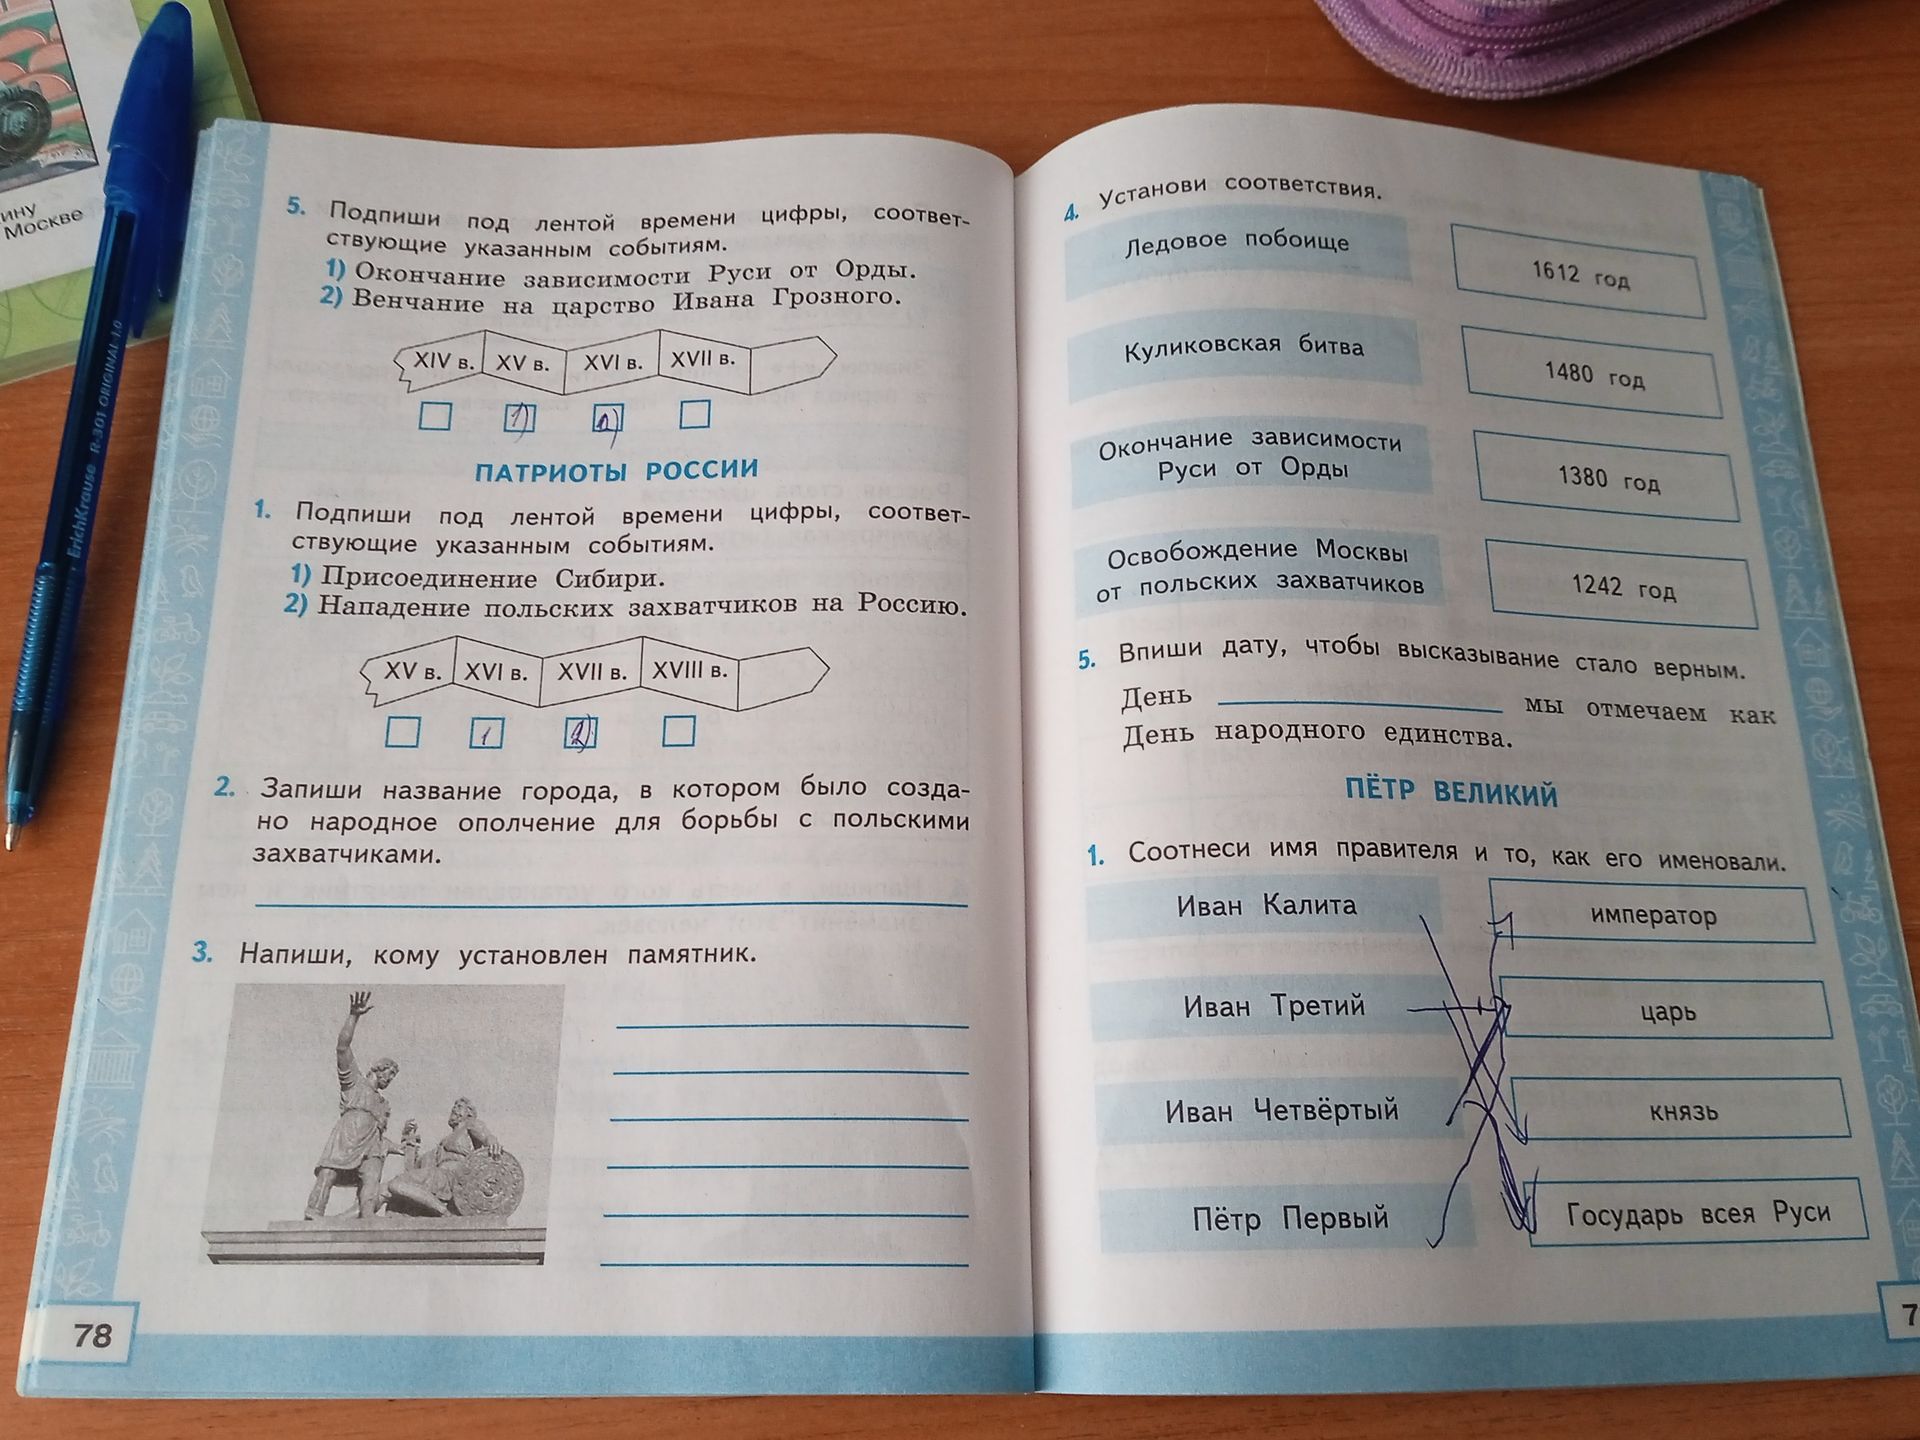 ину
Москве
ErichKrause R-301 ORIGINAL 1.0
5. Подпиши под лентой времени цифры, соответ-
ствующие указанным событиям.
1) Окончание зависимости Руси от Орды.
2) Венчание на царство Ивана Грозного.
XIV в. XV в. XVI в. XVII в.
1) 2)
ПАТРИОТЫ РОССИИ
1. Подпиши под лентой времени цифры, соответ-
ствующие указанным событиям.
1) Присоединение Сибири.
2) Нападение польских захватчиков на Россию.
XV в. XVI в. XVII в. XVIII в.
1 2)
2. Запиши название города, в котором было созда-
но народное ополчение для борьбы с польскими
захватчиками.
3. Напиши, кому установлен памятник.
78
4. Установи соответствия.
Ледовое побоище
1612 год
Куликовская битва
1480 год
Окончание зависимости
Руси от Орды
1380 год
Освобождение Москвы
от польских захватчиков
1242 год
5. Впиши дату, чтобы высказывание стало верным.
День мы отмечаем как
День народного единства.
ПЁТР ВЕЛИКИЙ
1. Соотнеси имя правителя и то, как его именовали.
Иван Калита
император
Иван Третий
царь
Иван Четвёртый
князь
Пётр Первый
Государь всея Руси
7